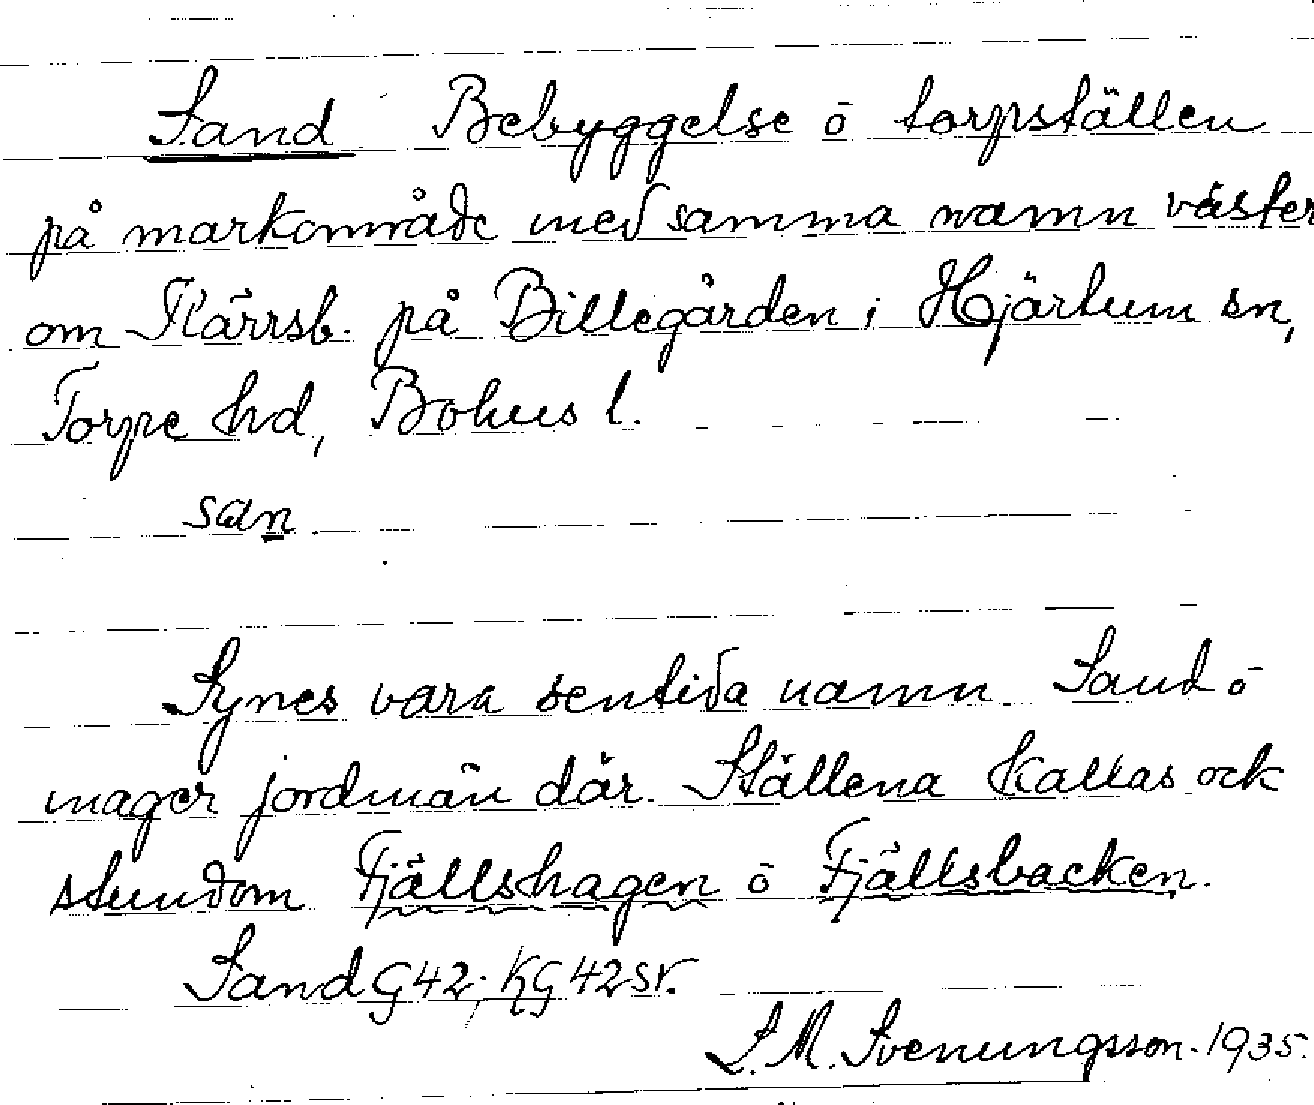 Sand Bebyggelse o torpställen
på markområde med samma namn väster
om Kärrsb. på Billegården i Hjärtum sn,
Torpe hd, Bohus l.
san
Synes vara sentida namn. Sand o
mager jordmån där. Ställena kallas ock
stundom Fjällshagen o Fjällsbacken.
Sand G42; KG42sr.
S. M. Svenungsson. 1935.